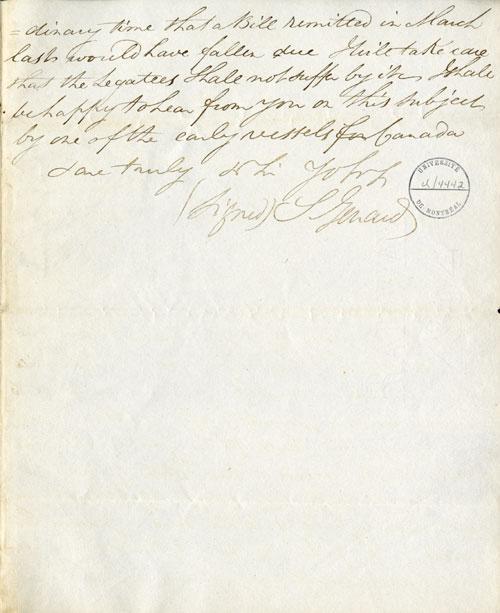 = dinary time that a Bill remitted in March
last would have fallen due I will take care
that the Legatees shall not suffer by it. I shall
be happy to hear from you on this subject
by one of the early vessels for Canada
I am truly
(Signed) S Gerard
UNIVERSITÉ
DE MONTRÉAL